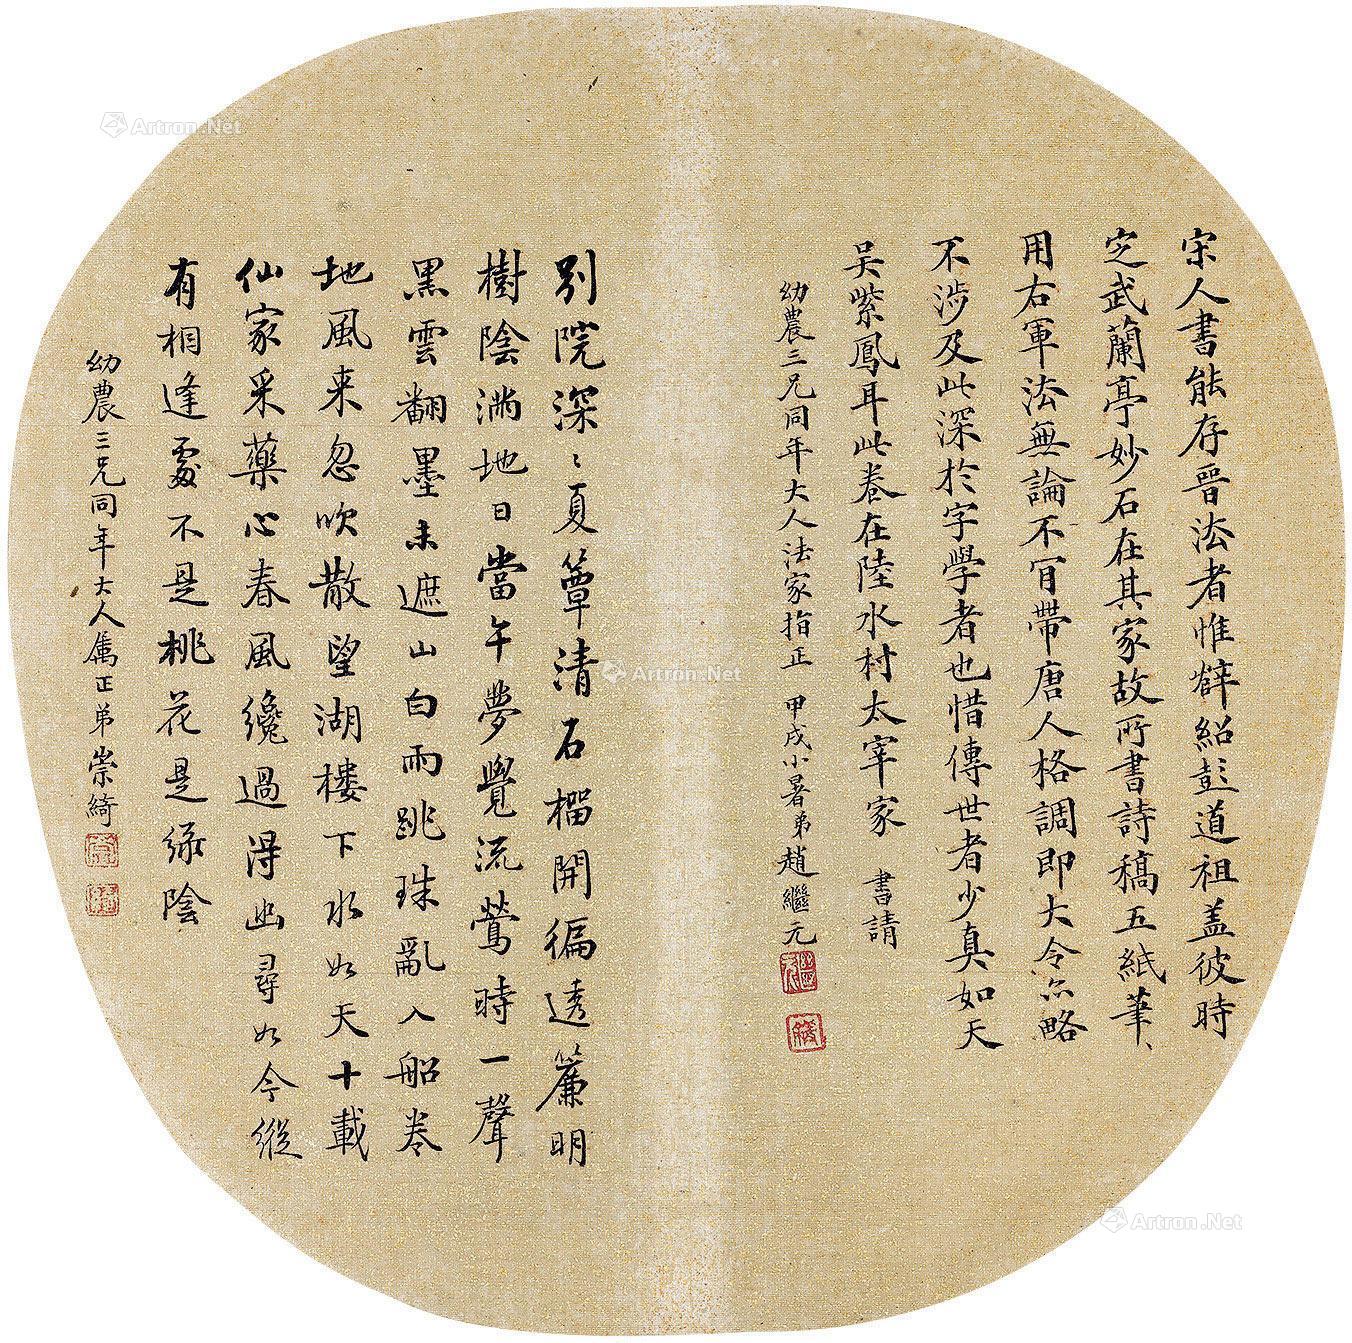 宋人書能存晉法者惟薛紹彭道祖蓋彼時
定武蘭亭妙石在其家故所書詩稿五紙筆〻
用右軍法無論不肎帶唐人格調即大令亦略
不涉及此深於字學者也惜傳世者少真如天
吳紫鳳耳此卷在陸水村太宰家 書請
幼農三兄同年大人法家指正 甲戌小暑弟趙繼元
別院深〻夏簟清石榴開徧透簾明
樹陰滿地日當午夢覺流鶯時一聲
黑雲翻墨未遮山白雨跳珠亂入船卷
地風来忽吹散望湖樓下水如天十載
仙家采藥心春風纔過得幽尋如今縱
有相逢處不是桃花是綠陰
幼農三兄同年大人屬正弟崇綺
Artron.Net
Artron.Net
Artron.Net